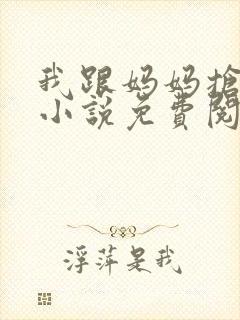 我跟妈妈搶
小說免費閱
浮萍是我